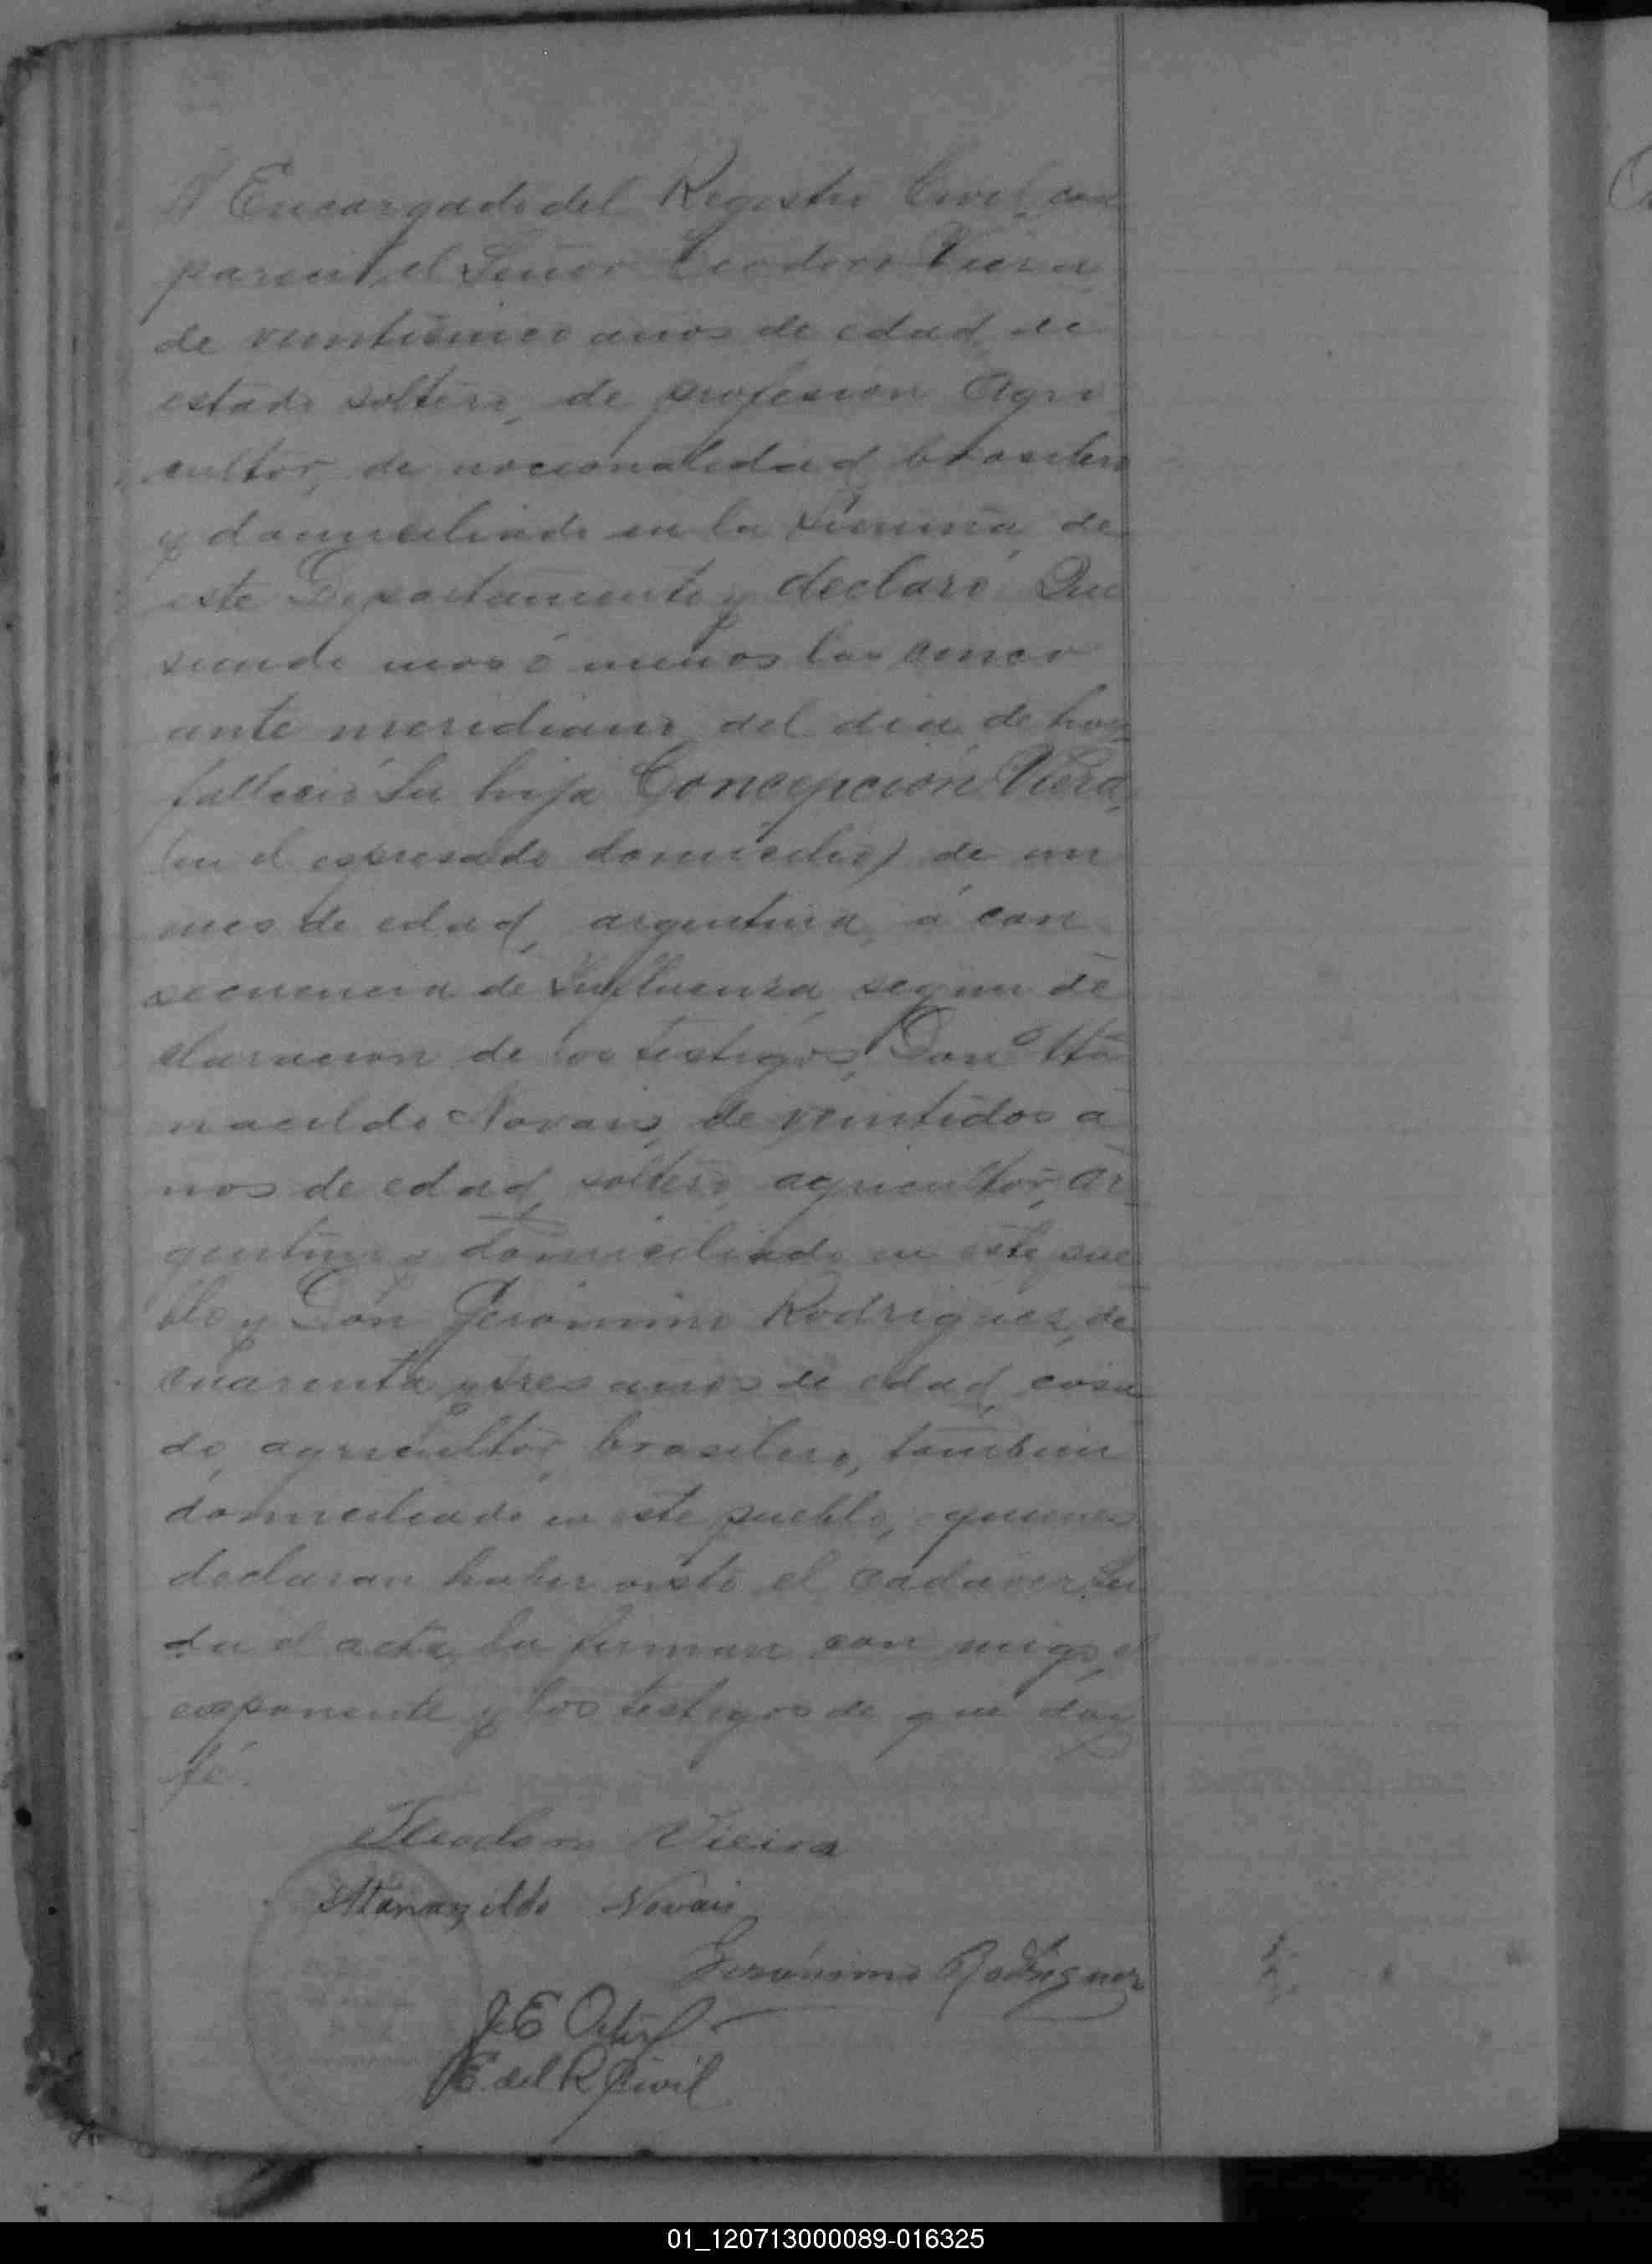 El Encargado del Registro Civil, com
pareció el Señor Teodoro Viera
de veinticinco años de edad, de
estado soltero, de profesion Agri
cultor, de nacionalidad brasilero
y domiciliado en la de
este Departamento y declaró: Que
siendo mas ó menos las cinco
ante meridiano del dia de hoy
falleció su hija Concepción Viera,
(en el espresado domicilio) de un
mes de edad, argentina, á con
secuencia de Influenza, segun de
claracion de los testigos, Don Ata
nacildo Novais, de veintidos a
ños de edad, soltero, agricultor, ar
gentino y domiciliado en este pue
blo y Don Gerónimo Rodriguez, de
cuarenta y tres años de edad, casa
do, agricultor, brasilero, tambien
domiciliado en este pueblo, quienes
declaran haber visto el cadáver. Lei
da el acta, la firman con migo, el
exponente y los testigos de que doy
fé.
Teodoro Vieira
Atanagildo Novais
Gerónimo Rodriguez
J. E. Ortiz
E. del R. Civil
01_120713000089-016325